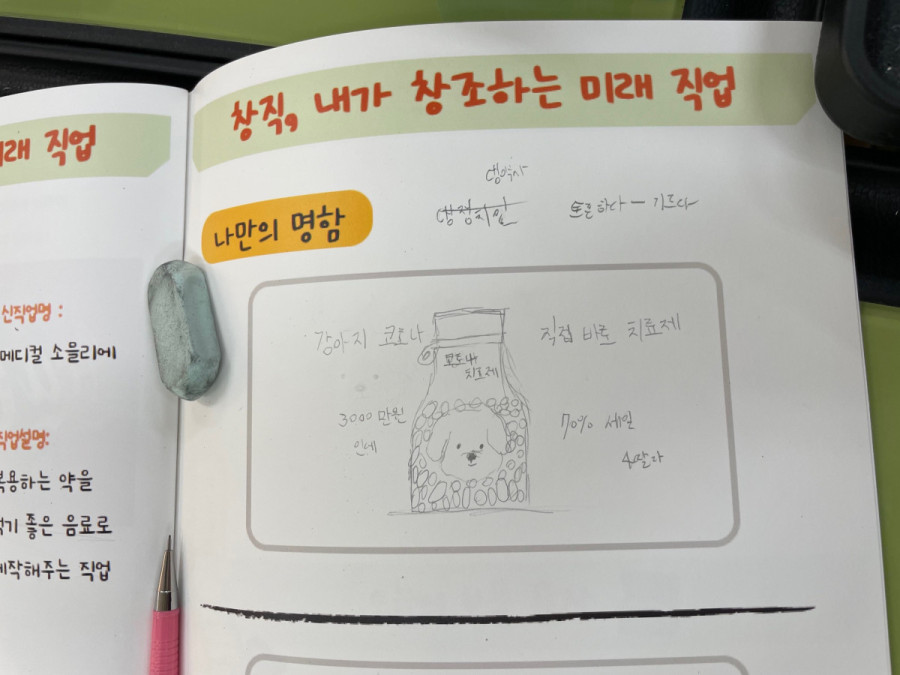 미래 직업
신직업명 :
메디컬 소믈리에
직업설명:
복용하는 약을
먹기 좋은 음료로
제작해주는 직업
창직, 내가 창조하는 미래 직업
나만의 명함
강아지 코로나
직접 바로 치료제
코로나
치료제
3000만원
인데
70% 세일
싸다